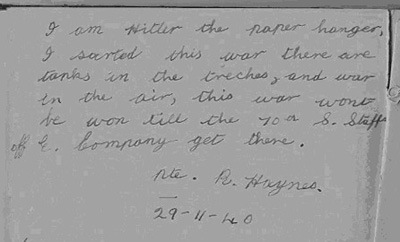 I am Hitler the paper hanger,
I sarted this war there are
tanks in the treches, and war
in the air, this war wont
be won till the 70th S. Staff
off E. Company get there.
Pte. R. Haynes.
29-11-40